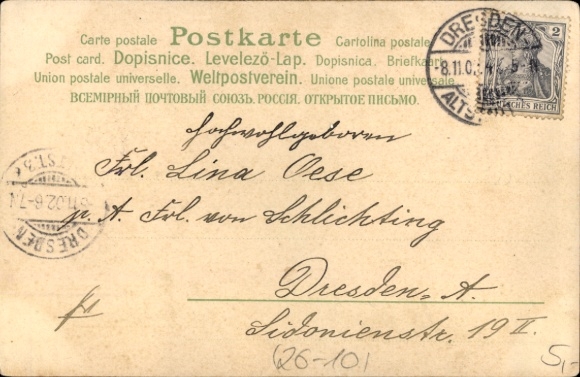 Carte postale Postkarte Cartolina postale
Post card. Dopisnice. Levelező-Lap. Dopisnica. Briefkaart
Union postale universelle. Weltpostverein. Unione postale universale
ВСЕМІРНЫЙ ПОЧТОВЫЙ СОЮЗЪ. РОССІЯ. ОТКРЫТОЕ ПИСЬМО.
DRESDEN
8.11.0
ALTST
2
DEUTSCHES REICH
Hochwohlgeboren
Frl. Lina Oese
p. A. Frl. von Schlichting
Dresden-A.
Sidonienstr. 19 II.
11.02.6-7
DRESDEN
(26-10)
5,-